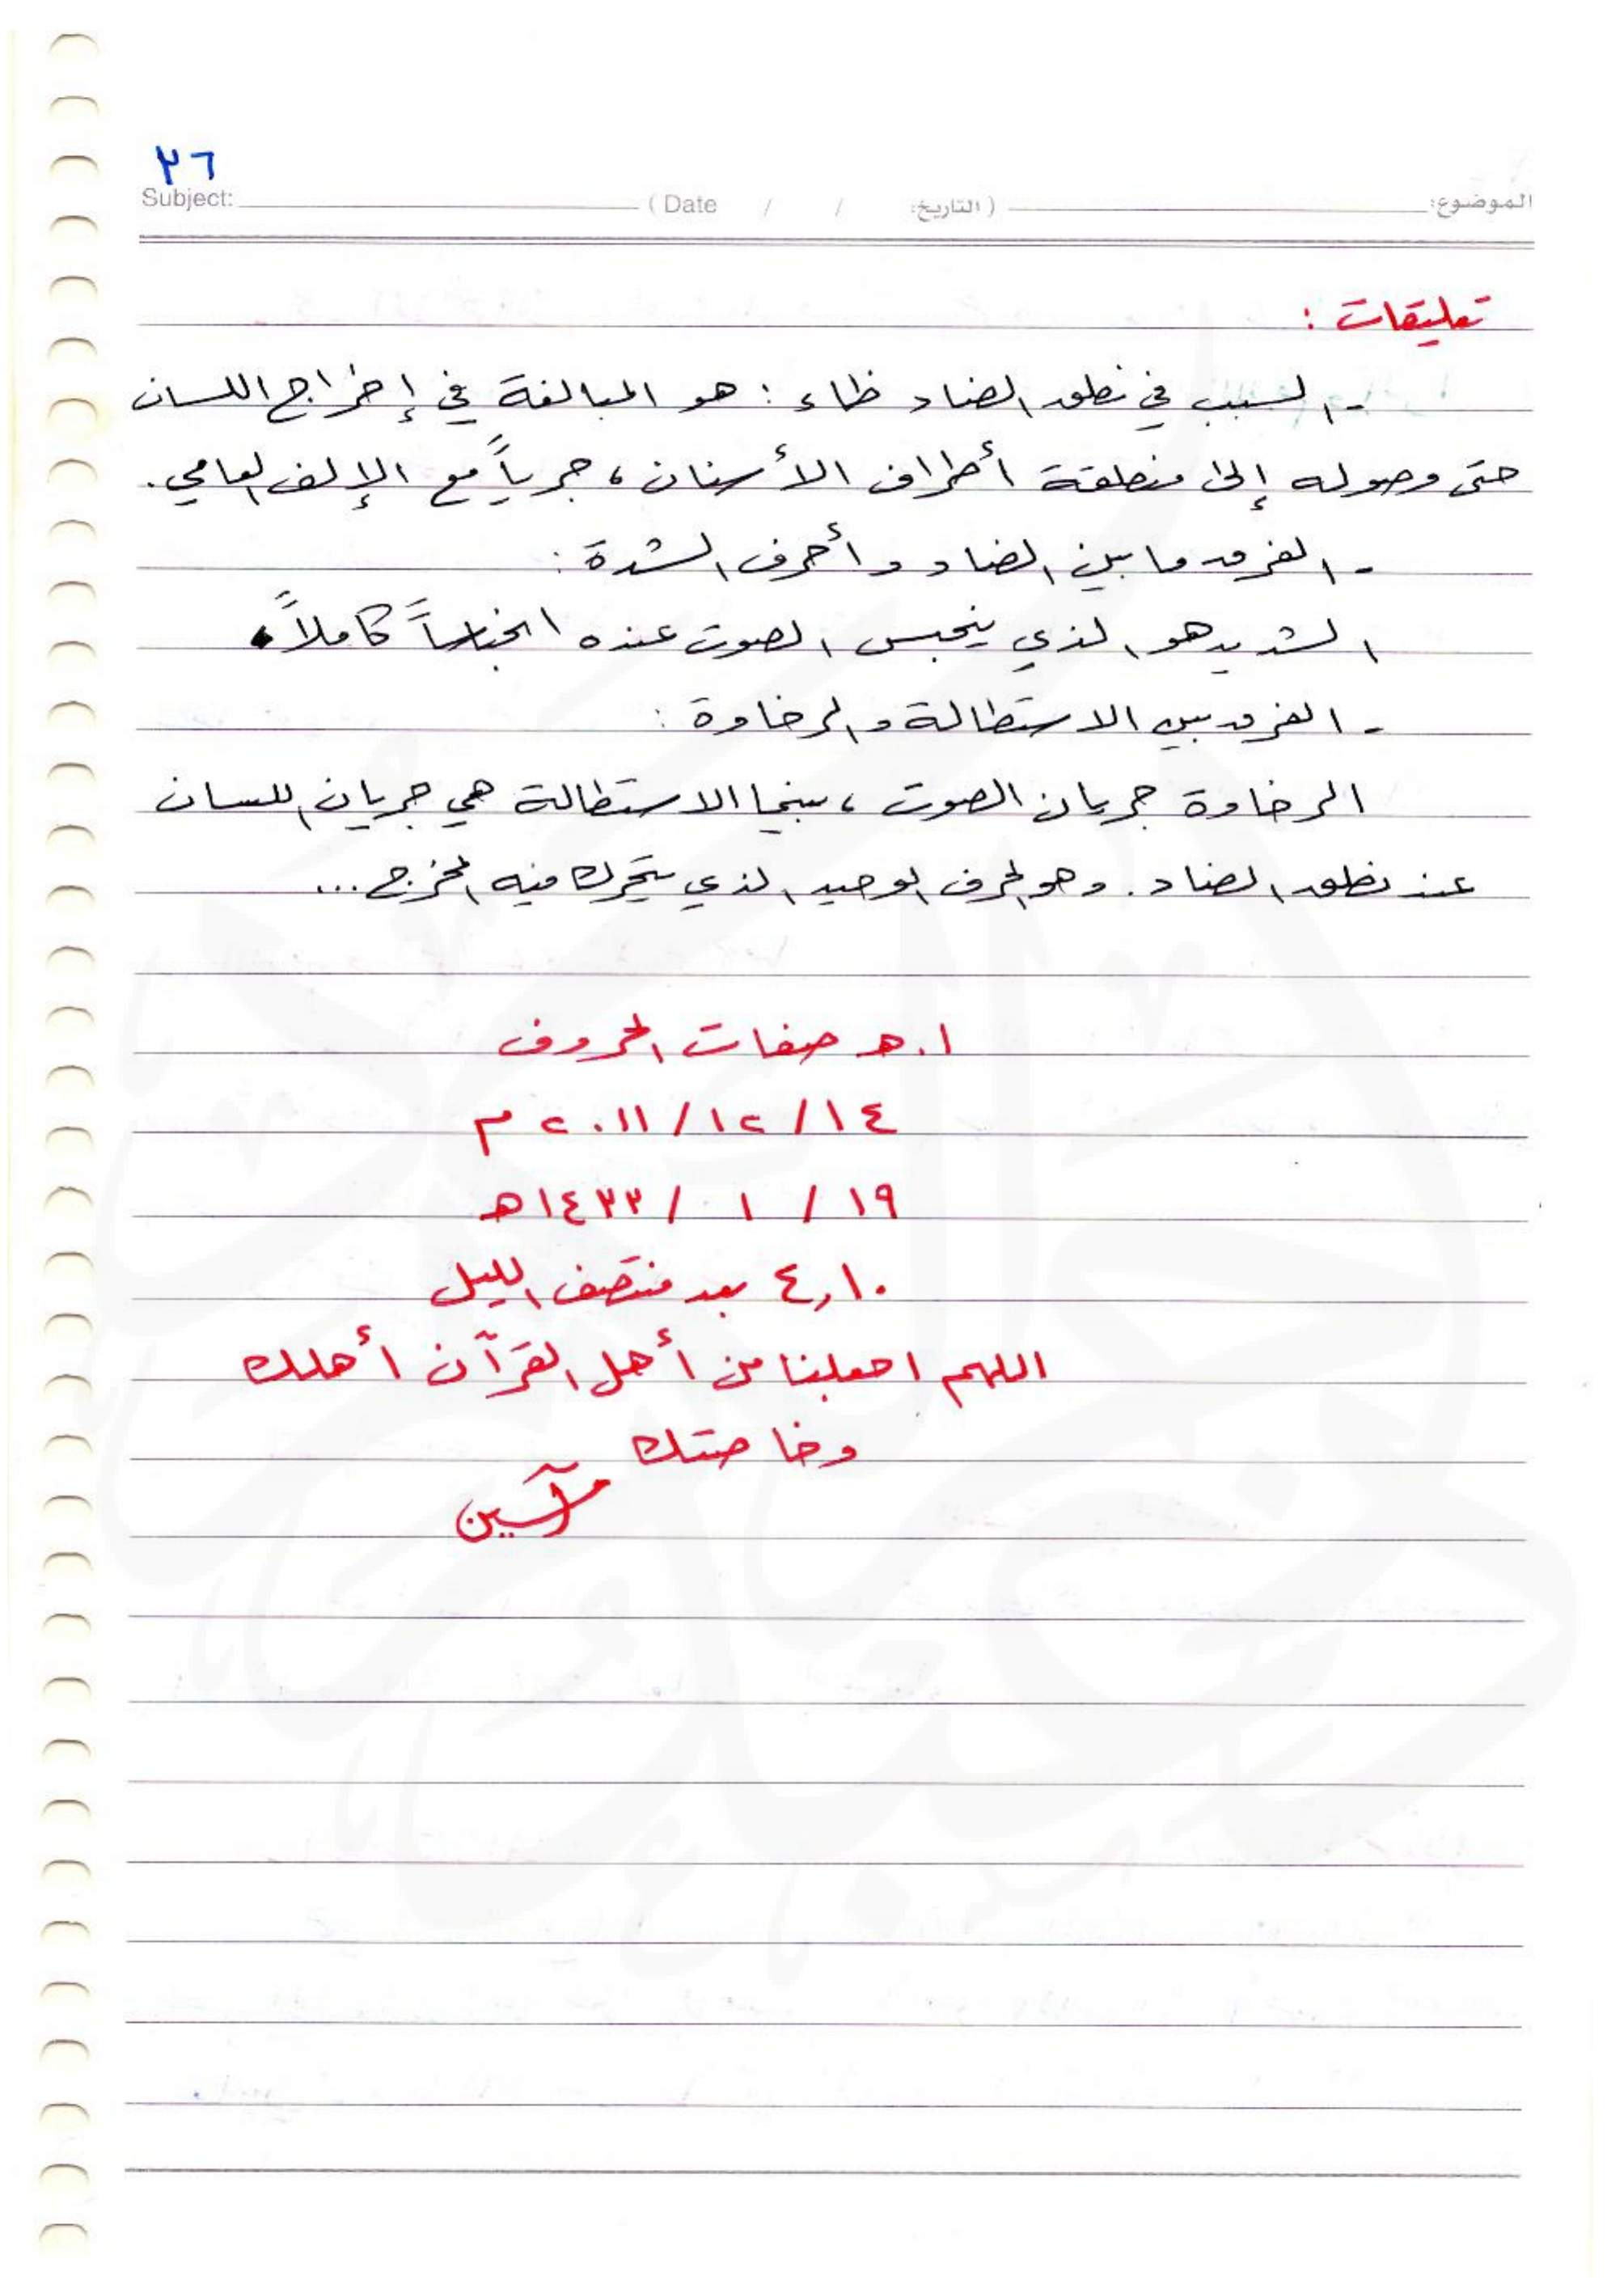 ٣٦
Subject: ( Date / / التاريخ: ) الموضوع:
تعليقات :
- السبب في نطق الضاد ظاء : هو المبالغة في إخراج اللسان
حتى وصوله إلى منطقة أطراف الأسنان ، جرياً مع الإلف العامي .
- الفرق ما بين الضاد وأحرف الشدة :
الشديد هو الذي ينحبس الصوت عنده انحباساً كاملاً .
- الفرق بين الاستطالة والرخاوة :
الرخاوة جريان الصوت ، بينما الاستطالة هي جريان اللسان
عند نطق الضاد . وهو الحرف الوحيد الذي يتحرك فيه المخرج ...
ا.هـ صفات الحروف
١٤ / ١٢ / ٢٠١١ م
١٩ / ١ / ١٤٣٣ هـ
٤,١٠ بعد منتصف الليل
اللهم اجعلنا من أهل القرآن أهلك
وخاصتك
آمين